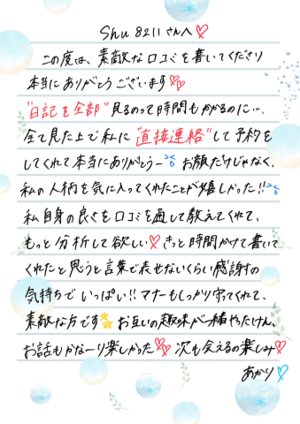 Shu8211さんへ♡
この度は、素敵な口コミを書いてくださり
本当にありがとうございます♡♡
"日記を全部"見るのって時間もかかるのに…
全て見た上で私に"直接連絡"して予約を
してくれて本当にありがとうー お顔だけじゃなく、
私の人柄を気に入ってくれたことが嬉しかった!!
私自身の良さを口コミを通して教えてくれて、
もっと分析して欲しい♡きっと時間かけて書いて
くれたと思うと言葉で表せないくらい感謝の
気持ちでいっぱい!!マナーもしっかり守ってくれて、
素敵な方です⭐お互いの趣味が一緒やったけん、
お話もかなーり楽しかった♡♡次も会えるの楽しみ♡
あかり♡